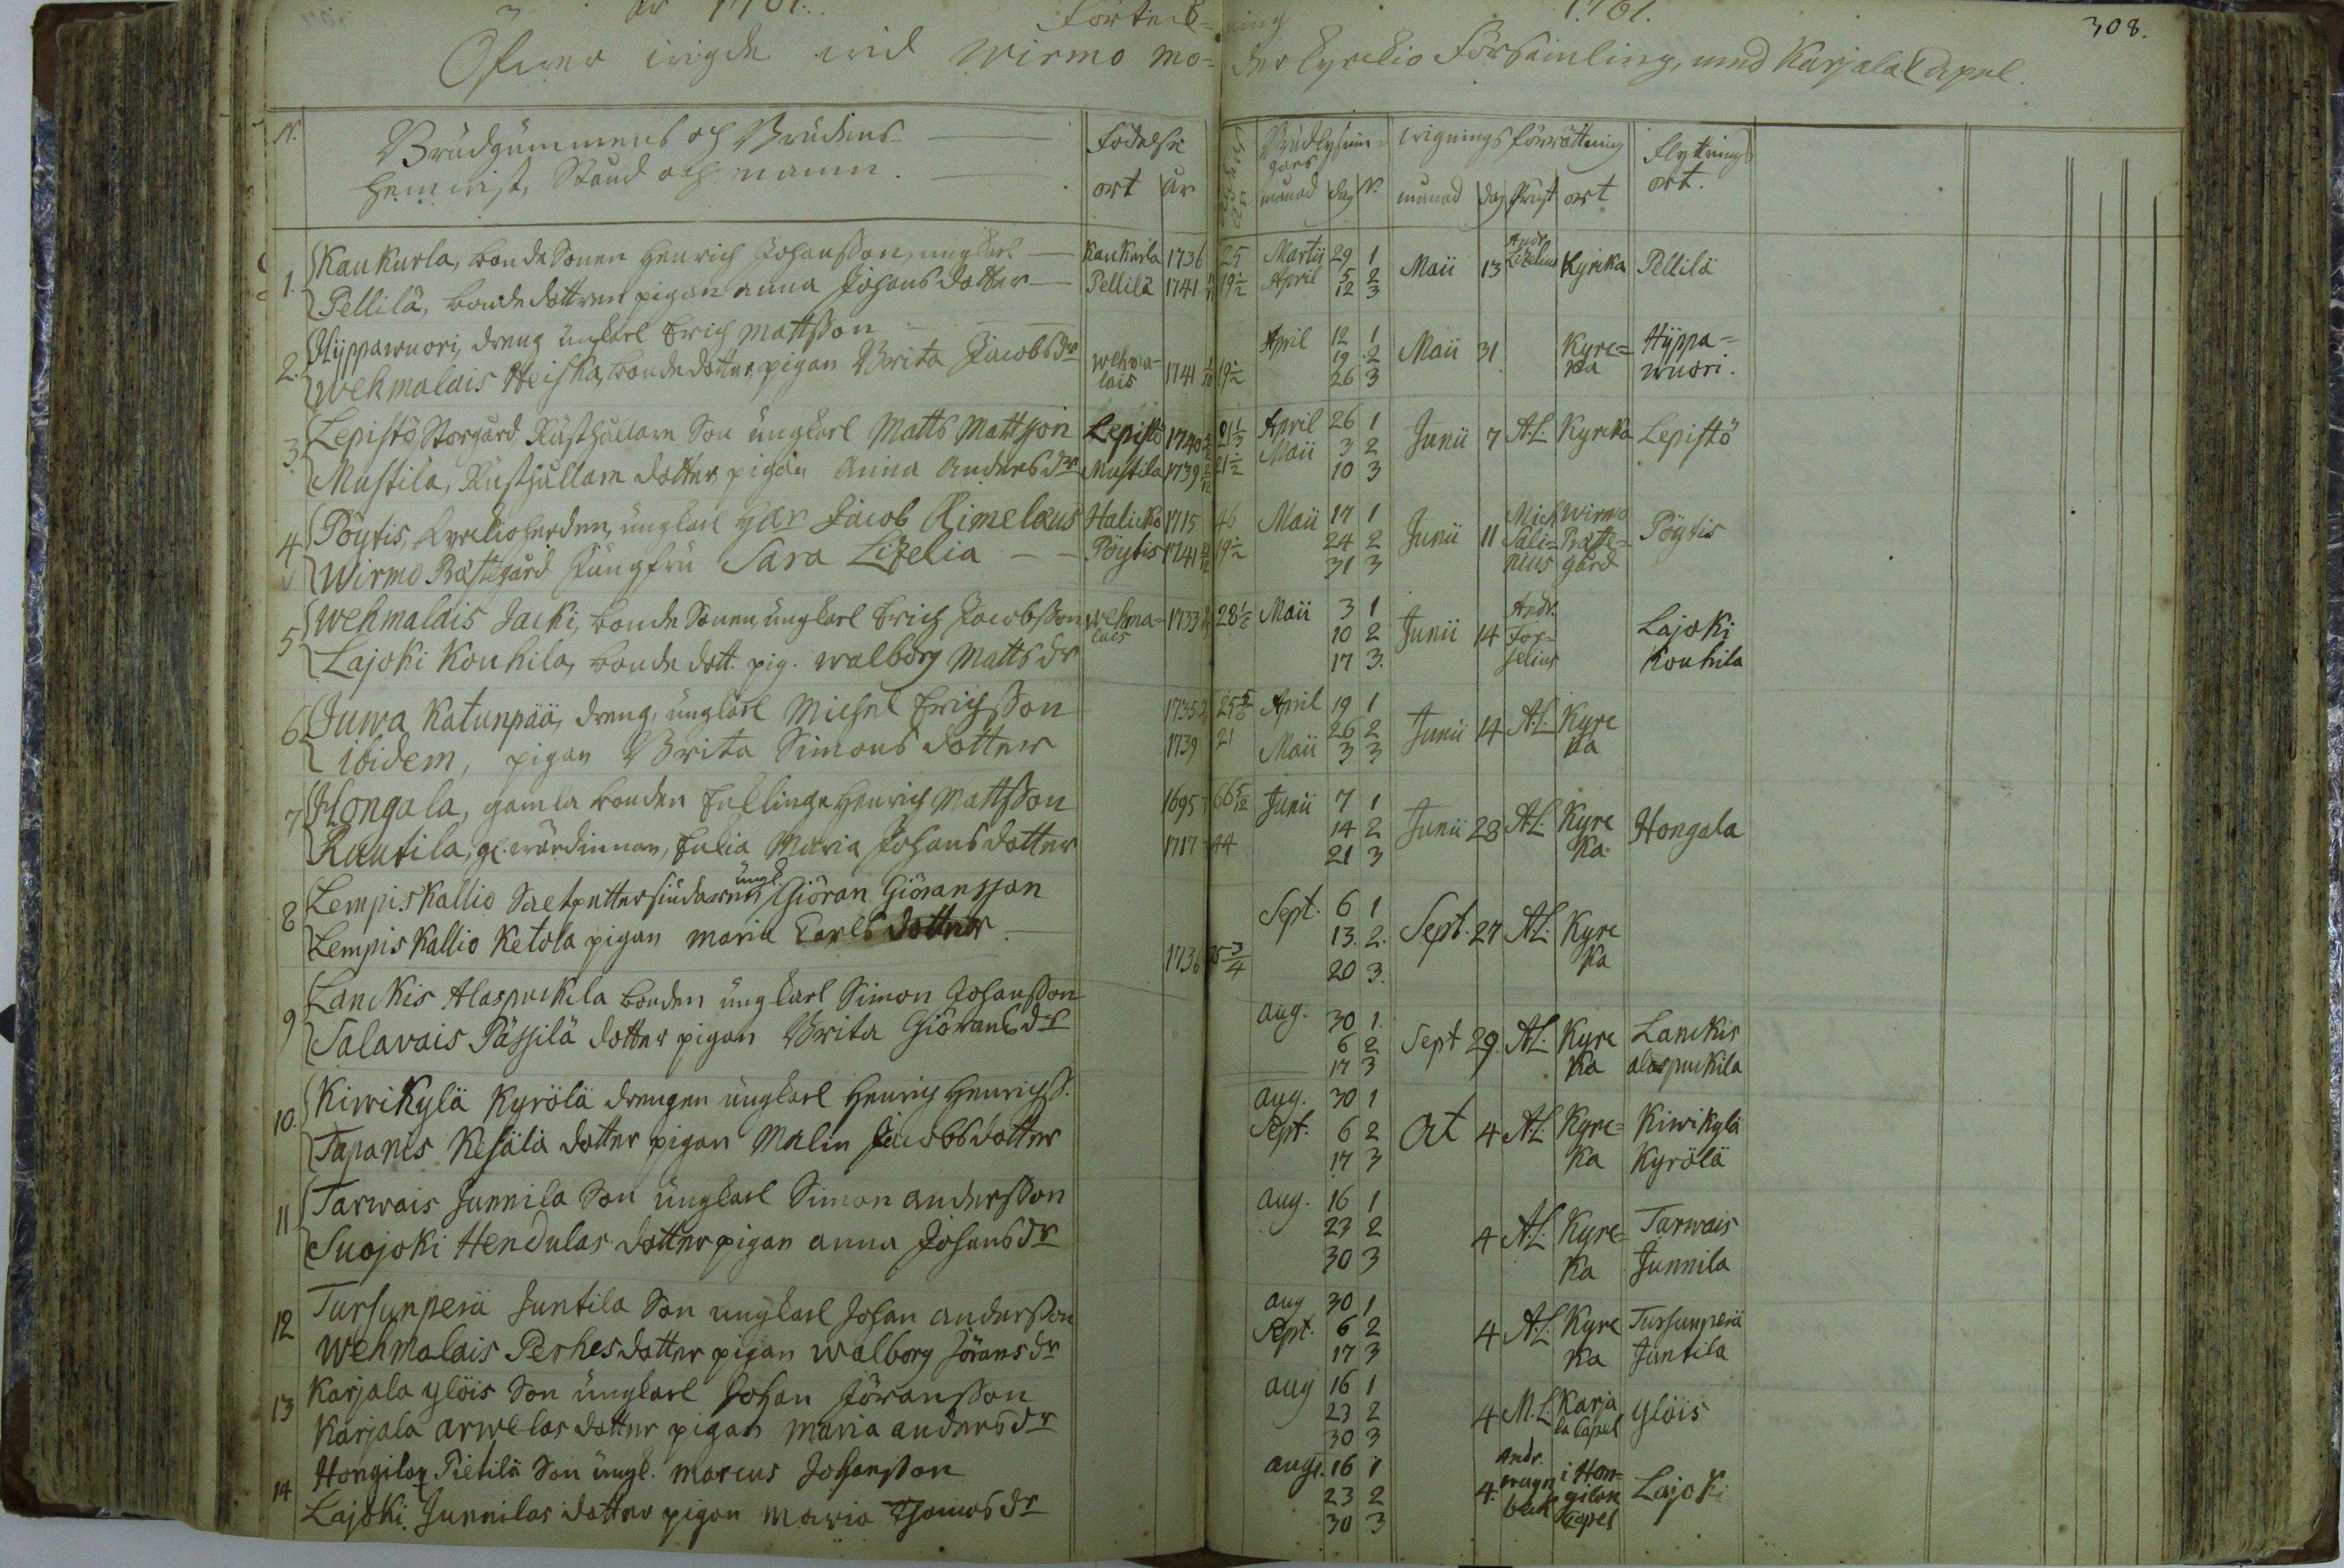 308.
år 1761. Förteck= ning 1761.
Öfwer wigde wid Wirmo mo= derkyrckio Församling, med Karjala Capel.
N. Brudgummens och Brudens Födelse Brudlysnin= wignings förrättning Flyttnings
gars
hemwist, Stånd och namn. ort år månad dag N. månad dag Präst ort ort.
1. Kaukurla, bonde Sonen Henrich Johansson, ungkarl Kaukurla 1736 25 Martii 29 1 Maii 13 Andr. Lizelius Kyrka Pellilä
Pellilä, bonde dottren pigan anna Johans dotter Pellilä 1741 19½ April 5 2
12 3
2. Hyppawuori, dreng ungkarl Erich Mattsson April 12 1 Maii 31 Kyrc= Hyppa=
Wehmalais Heiska, bonde dotter, pigan Brita Jacobs dr Wehma= 1741 19½ 19 2 ka wuori.
lais 26 3
3. Lepistö Storgård Rusthållare Son ungkarl Matts Mattsson Lepistö 1740 21⅓ April 26 1 Junii 7 A.L. Kyrcka Lepistö
Maii 3 2
Mustila, Rusthållare dotter pigan Anna Anders dr Mustila 1739 21½ 10 3
4 Pöytis, Kyrckioherden, ungkarl Her Jacob Rimelæus Halicko 1715 46 Maii 17 1 Junii 11 Mich Wirmo Pöytis
24 2 Sali= Præste=
Wirmo Præstegård Jungfru Sara Lizelia Pöytis 1741 19½ 31 3 nius gård
5 Wehmalais Jacki, bonde Sonen, ungkarl Erich Jacobsson Wehma= 1733 28⅙ Maii 3 1 Junii 14 Andr. Lajoki
lais 10 2 For=
Lajoki Kouhila, bonde dott. pig. Walborg Matts dr 17 3. selius Kouhila
6 Juwa Katunpää, dreng, ungkarl Michel Erichsson 1735 25⅚ April 19 1 Junii 14 A.L. Kyrc
26 2
ibidem, pigan Brita Simons dotter 1739 21 Maii 3 3 ka
7 Hongala, gamla bonden Enklinge Henrich Mattsson 1695 66 5/12 Junii 7 1 Junii 28 A.L. Kyrc Hongala
14 2
Rautila, gl. wärdinnan, Enkia Maria Johans dotter 1717 44 21 3 ka
8 Lempiskallio ungk. Giöran Giöransson Sept. 6 1 Sept. 27 A.L. Kyrc
13. 2.
Lempiskallio Ketola pigan Maria Carls dotter 1736 25¾ 20 3. ka
9 Lanckis Alaspuckila bonden ungkarl Simon Johansson aug. 30 1. Sept 29. A.L. Kyrc Lanckis
6 2
Salavais Pässilä dotter pigan Brita Giörans dr 17 3 ka alaspuckila
10. Kiwikylä Kyrölä drengen ungkarl Henrich Henrichss. aug. 30 1 Oct 4 A.L. Kyrc= Kiwikylä
Sept. 6 2
Tapanis Kesälä dotter pigan Malin Jacobs dotter 17 3 ka Kyrölä
11 Tarwais Junnila Son ungkarl Simon Andersson aug. 16 1 4 A.L. Kyrc= Tarwais
23 2
Suojoki Hendulas dotter pigan anna Johans dr 30 3 ka Junnila
12 Tursunperä Juntila Son ungkarl Johan andersson aug 30 1 4 A.L. Kyrc Tursunperä
Sept. 6 2
Wehmalais Perhes dotter pigan Walborg Jörans dr 17 3 ka Juntila
13 Karjala ylöis Son ungkarl Johan Jöransson aug 16 1 4 M.L. Karja ylöis
23 2 la Capel
Karjala arwelas dotter pigan Maria anders dr 30 3
14 Hongilax Pietilä Son ungk. Marcus Johansson aug. 16 1 4. Andr. i Hon= Lajoki
23 2 wagn gilax
Lajoki Junnilas dotter pigan Maria Thomas dr 30 3 beck Capel